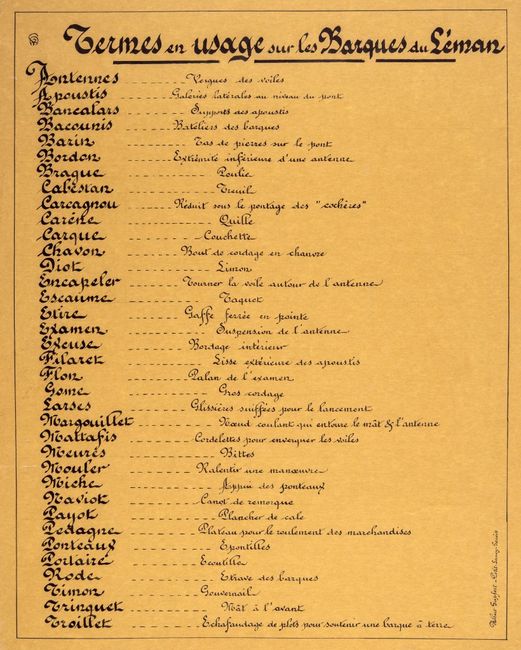 Termes en usage sur les Barques du Léman
Antennes ---------- Vergues des voiles
Apoustis ---------- Galeries latérales au niveau du pont
Bancalars ---------- Supports des apoustis
Bacounis ---------- Bateliers des barques
Barin ---------- Tas de pierres sur le pont
Bordon ---------- Extrémité inférieure d'une antenne
Brague ---------- Poulie
Cabestan ---------- Treuil
Carcagnou ---------- Réduit sous le pontage des "cochères"
Carène ---------- Quille
Carque ---------- Couchette
Chavon ---------- Bout de cordage en chanvre
Diot ---------- Limon
Encapeler ---------- Tourner la voile autour de l'antenne
Escaume ---------- Taquet
Etire ---------- Gaffe ferrée en pointe
Examen ---------- Suspension de l'antenne
Exeuse ---------- Bordage intérieur
Filaret ---------- Lisse extérieure des apoustis
Flon ---------- Palan de l'examen
Gome ---------- Gros cordage
Larses ---------- Glissières suiffées pour le lancement
Margouillet ---------- Nœud coulant qui entoure le mât & l'antenne
Mattafis ---------- Cordelettes pour enverguer les voiles
Meurés ---------- Bittes
Mouler ---------- Ralentir une manœuvre
Miche ---------- Appui des ponteaux
Naviot ---------- Canot de remorque
Payot ---------- Plancher de cale
Pedagne ---------- Plateau pour le roulement des marchandises
Ponteaux ---------- Epontilles
Portaire ---------- Ecoutille
Rode ---------- Etrave des barques
Timon ---------- Gouvernail
Trinquet ---------- Mât à l'avant
Troillet ---------- Echafaudage de plots pour soutenir une barque à terre